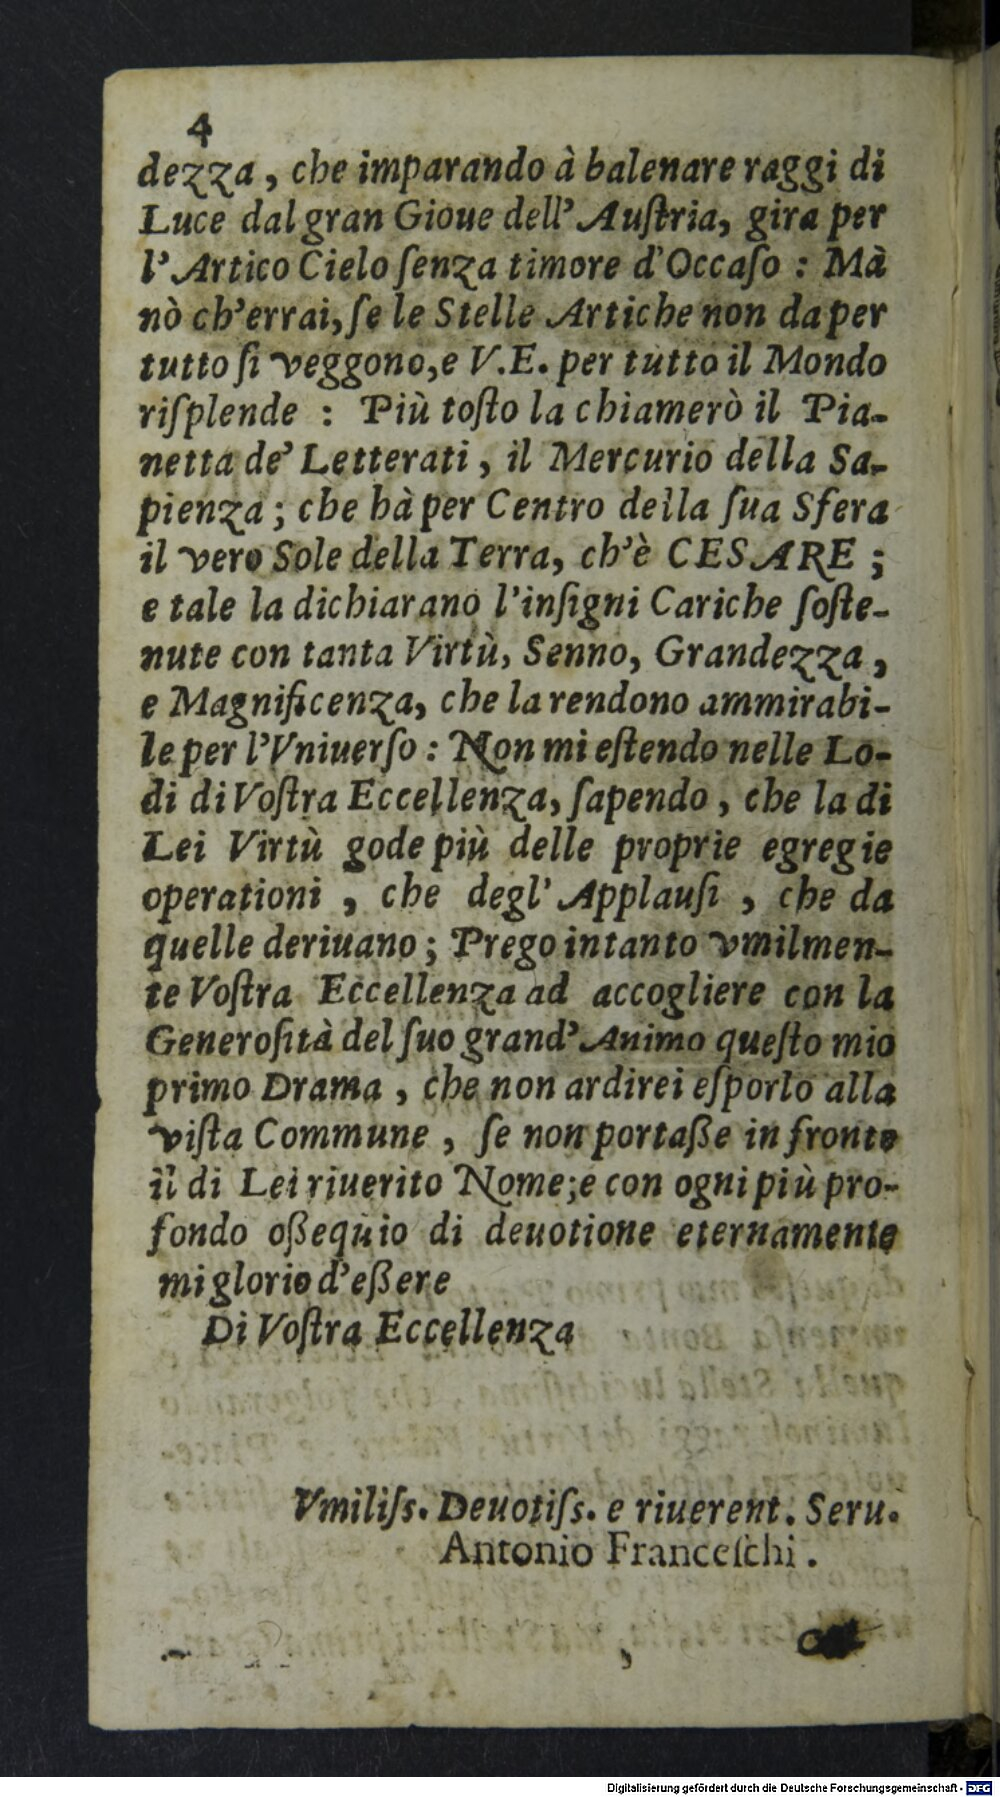 4
dezza, che imparando à balenare raggi di
Luce dal gran Gioue dell'Auſtria, gira per
l'Artico Cielo ſenza timore d'Occaſo : Mà
nò ch'errai, ſe le Stelle Artiche non da per
tutto ſi veggono, e V.E. per tutto il Mondo
riſplende : Più toſto la chiamerò il Pia-
netta de' Letterati, il Mercurio della Sa-
pienza; che hà per Centro della ſua Sfera
il vero Sole della Terra, ch'è CESARE;
e tale la dichiarano l'inſigni Cariche ſoſte-
nute con tanta Virtù, Senno, Grandezza,
e Magnificenza, che la rendono ammirabi-
le per l'Vniuerſo : Non mi eſtendo nelle Lo-
di di Voſtra Eccellenza, ſapendo, che la di
Lei Virtù gode più delle proprie egregie
operationi, che degl'Applauſi, che da
quelle deriuano; Prego intanto vmilmen-
te Voſtra Eccellenza ad accogliere con la
Generoſità del ſuo grand'Animo queſto mio
primo Drama, che non ardirei eſporlo alla
viſta Commune, ſe non portaße in fronte
il di Lei riuerito Nome; e con ogni più pro-
fondo oßequio di deuotione eternamente
mi glorio d'eßere
Di Voſtra Eccellenza
Vmiliſs. Deuotiſs. e riuerent. Seru.
Antonio Franceſchi.
Digitalisierung gefördert durch die Deutsche Forschungsgemeinschaft - DFG